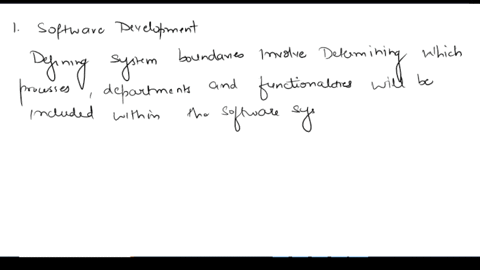 1. Software Development
Defining System boundaries involve Determining which
processes, departments and functionalities will be
included within the Software sys